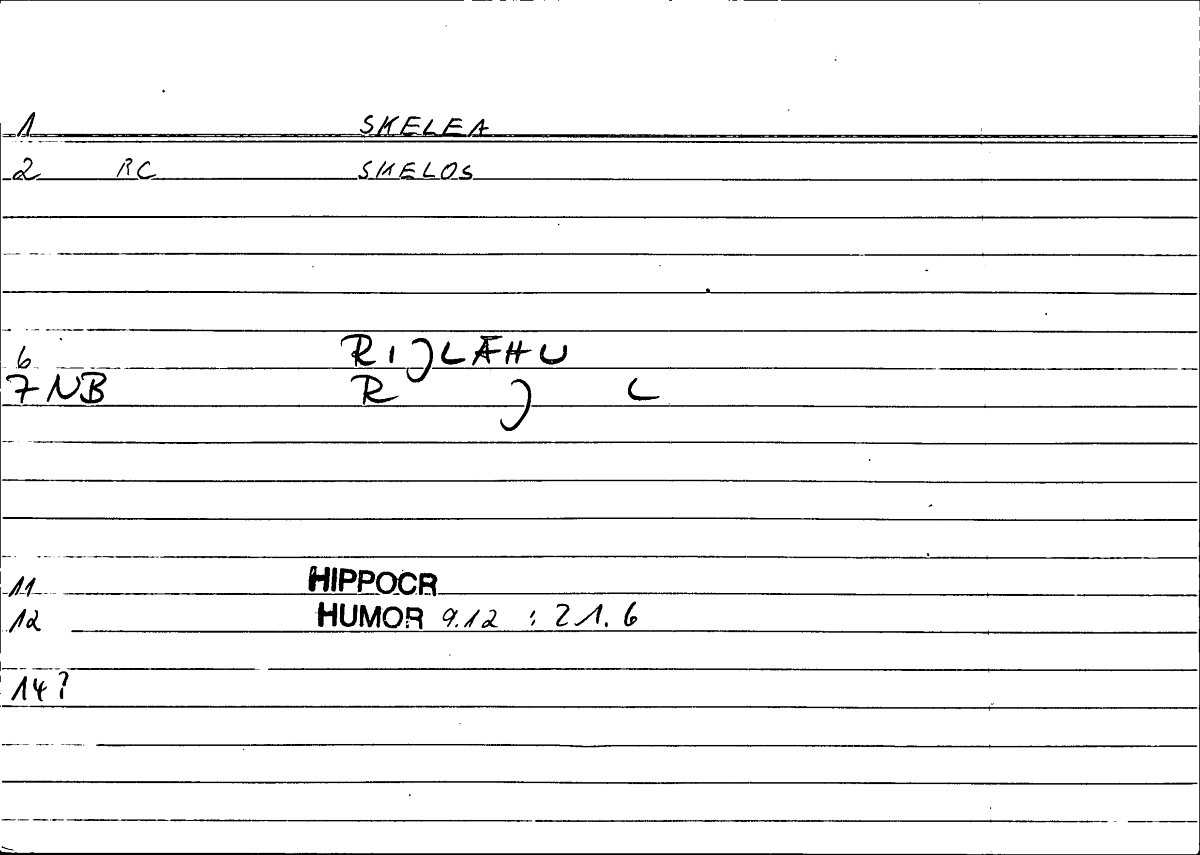 1 SKELEA
2 RC SKELOS
6 RIJLAHU
7 NB R J L
11 HIPPOCR
12 HUMOR 9.12 : 21.6
14?